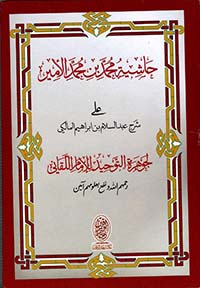 حاشية محمد بن محمد الأمير
على
شرح عبد السلام بن إبراهيم المالكي
لجوهرة التوحيد للإمام اللقاني
رحمهم الله ونفع بعلومهم آمين